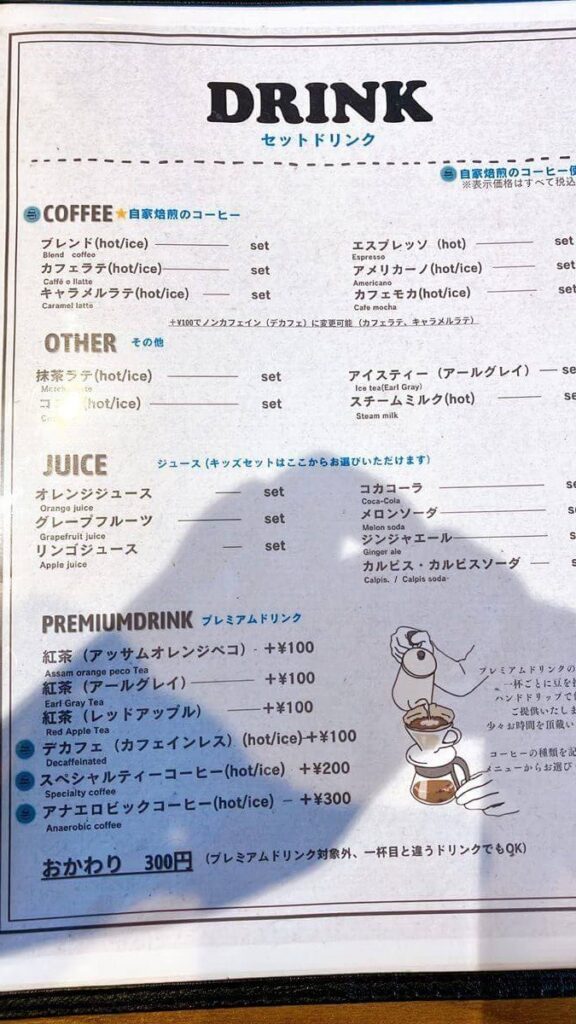 DRINK
セットドリンク
自家焙煎のコーヒー
※表示価格はすべて税込
COFFEE★自家焙煎のコーヒー
ブレンド(hot/ice) set
Blend coffee
カフェラテ(hot/ice) set
Caffè e llatte
キャラメルラテ(hot/ice) set
Caramel latte
エスプレッソ (hot) set
Espresso
アメリカーノ(hot/ice) set
Americano
カフェモカ(hot/ice) set
Cafe mocha
+¥100でノンカフェイン（デカフェ）に変更可能（カフェラテ、キャラメルラテ）
OTHER その他
抹茶ラテ(hot/ice) set
(hot/ice) set
アイスティー（アールグレイ）
Ice tea(Earl Gray)
スチームミルク(hot)
Steam milk
JUICE ジュース (キッズセットはここからお選びいただけます)
オレンジジュース set
Orange juice
グレープフルーツ set
Grapefruit juice
リンゴジュース set
Apple juice
コカコーラ
Coca-Cola
メロンソーダ
Melon soda
ジンジャエール
Ginger ale
カルピス・カルピスソーダ
Calpis. / Calpis soda
PREMIUMDRINK プレミアムドリンク
紅茶（アッサムオレンジペコ） +¥100
Assam orange peco Tea
紅茶（アールグレイ） +¥100
Earl Gray Tea
紅茶（レッドアップル） +¥100
Red Apple Tea
デカフェ（カフェインレス）(hot/ice)+¥100
Decaffeinated
スペシャルティーコーヒー(hot/ice) +¥200
Specialty coffee
アナエロビックコーヒー(hot/ice) +¥300
Anaerobic coffee
プレミアムドリンクの
一杯ごとに豆を
ハンドドリップで
ご提供いたしま
少々お時間を頂戴い
コーヒーの種類を記
メニューからお選び
おかわり 300円 (プレミアムドリンク対象外、一杯目と違うドリンクでもOK)